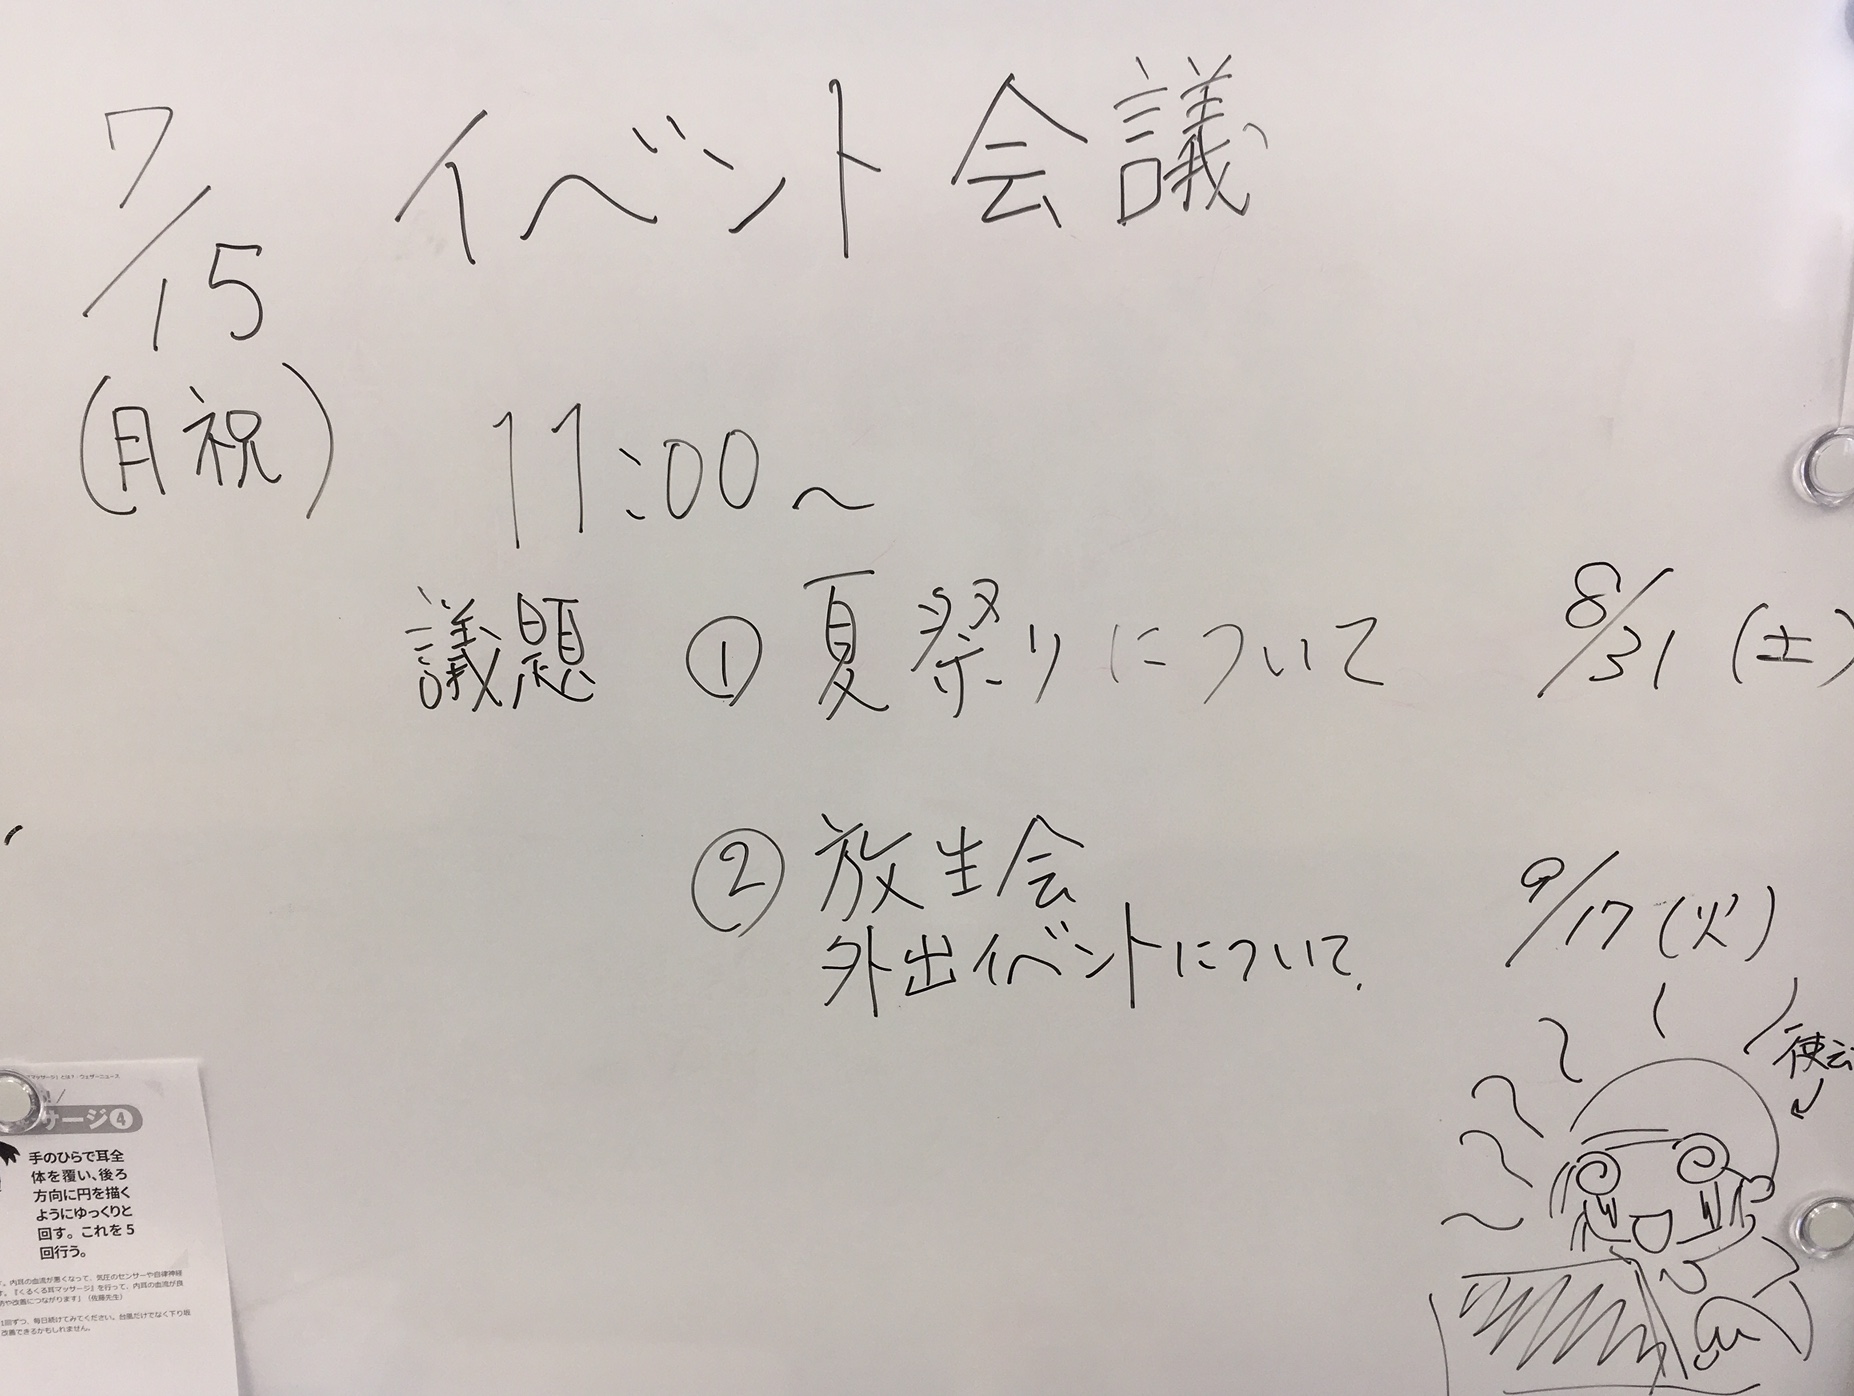 7/15
(月祝)
イベント会議
11:00~
議題 ① 夏祭りについて 8/31 (土)
② 放生会 9/17 (火)
外出イベントについて.
サージ④
手のひらで耳全
体を覆い、後ろ
方向に円を描く
ようにゆっくりと
回す。これを5
回行う。
内耳の血流が悪くなって、気圧のセンサーや自律神経
す。『くるくる耳マッサージ』を行って、内耳の血流が良
防や改善につながります」(佐藤先生)
1回ずつ、毎日続けてみてください。台風だけでなく下り坂
改善できるかもしれません。